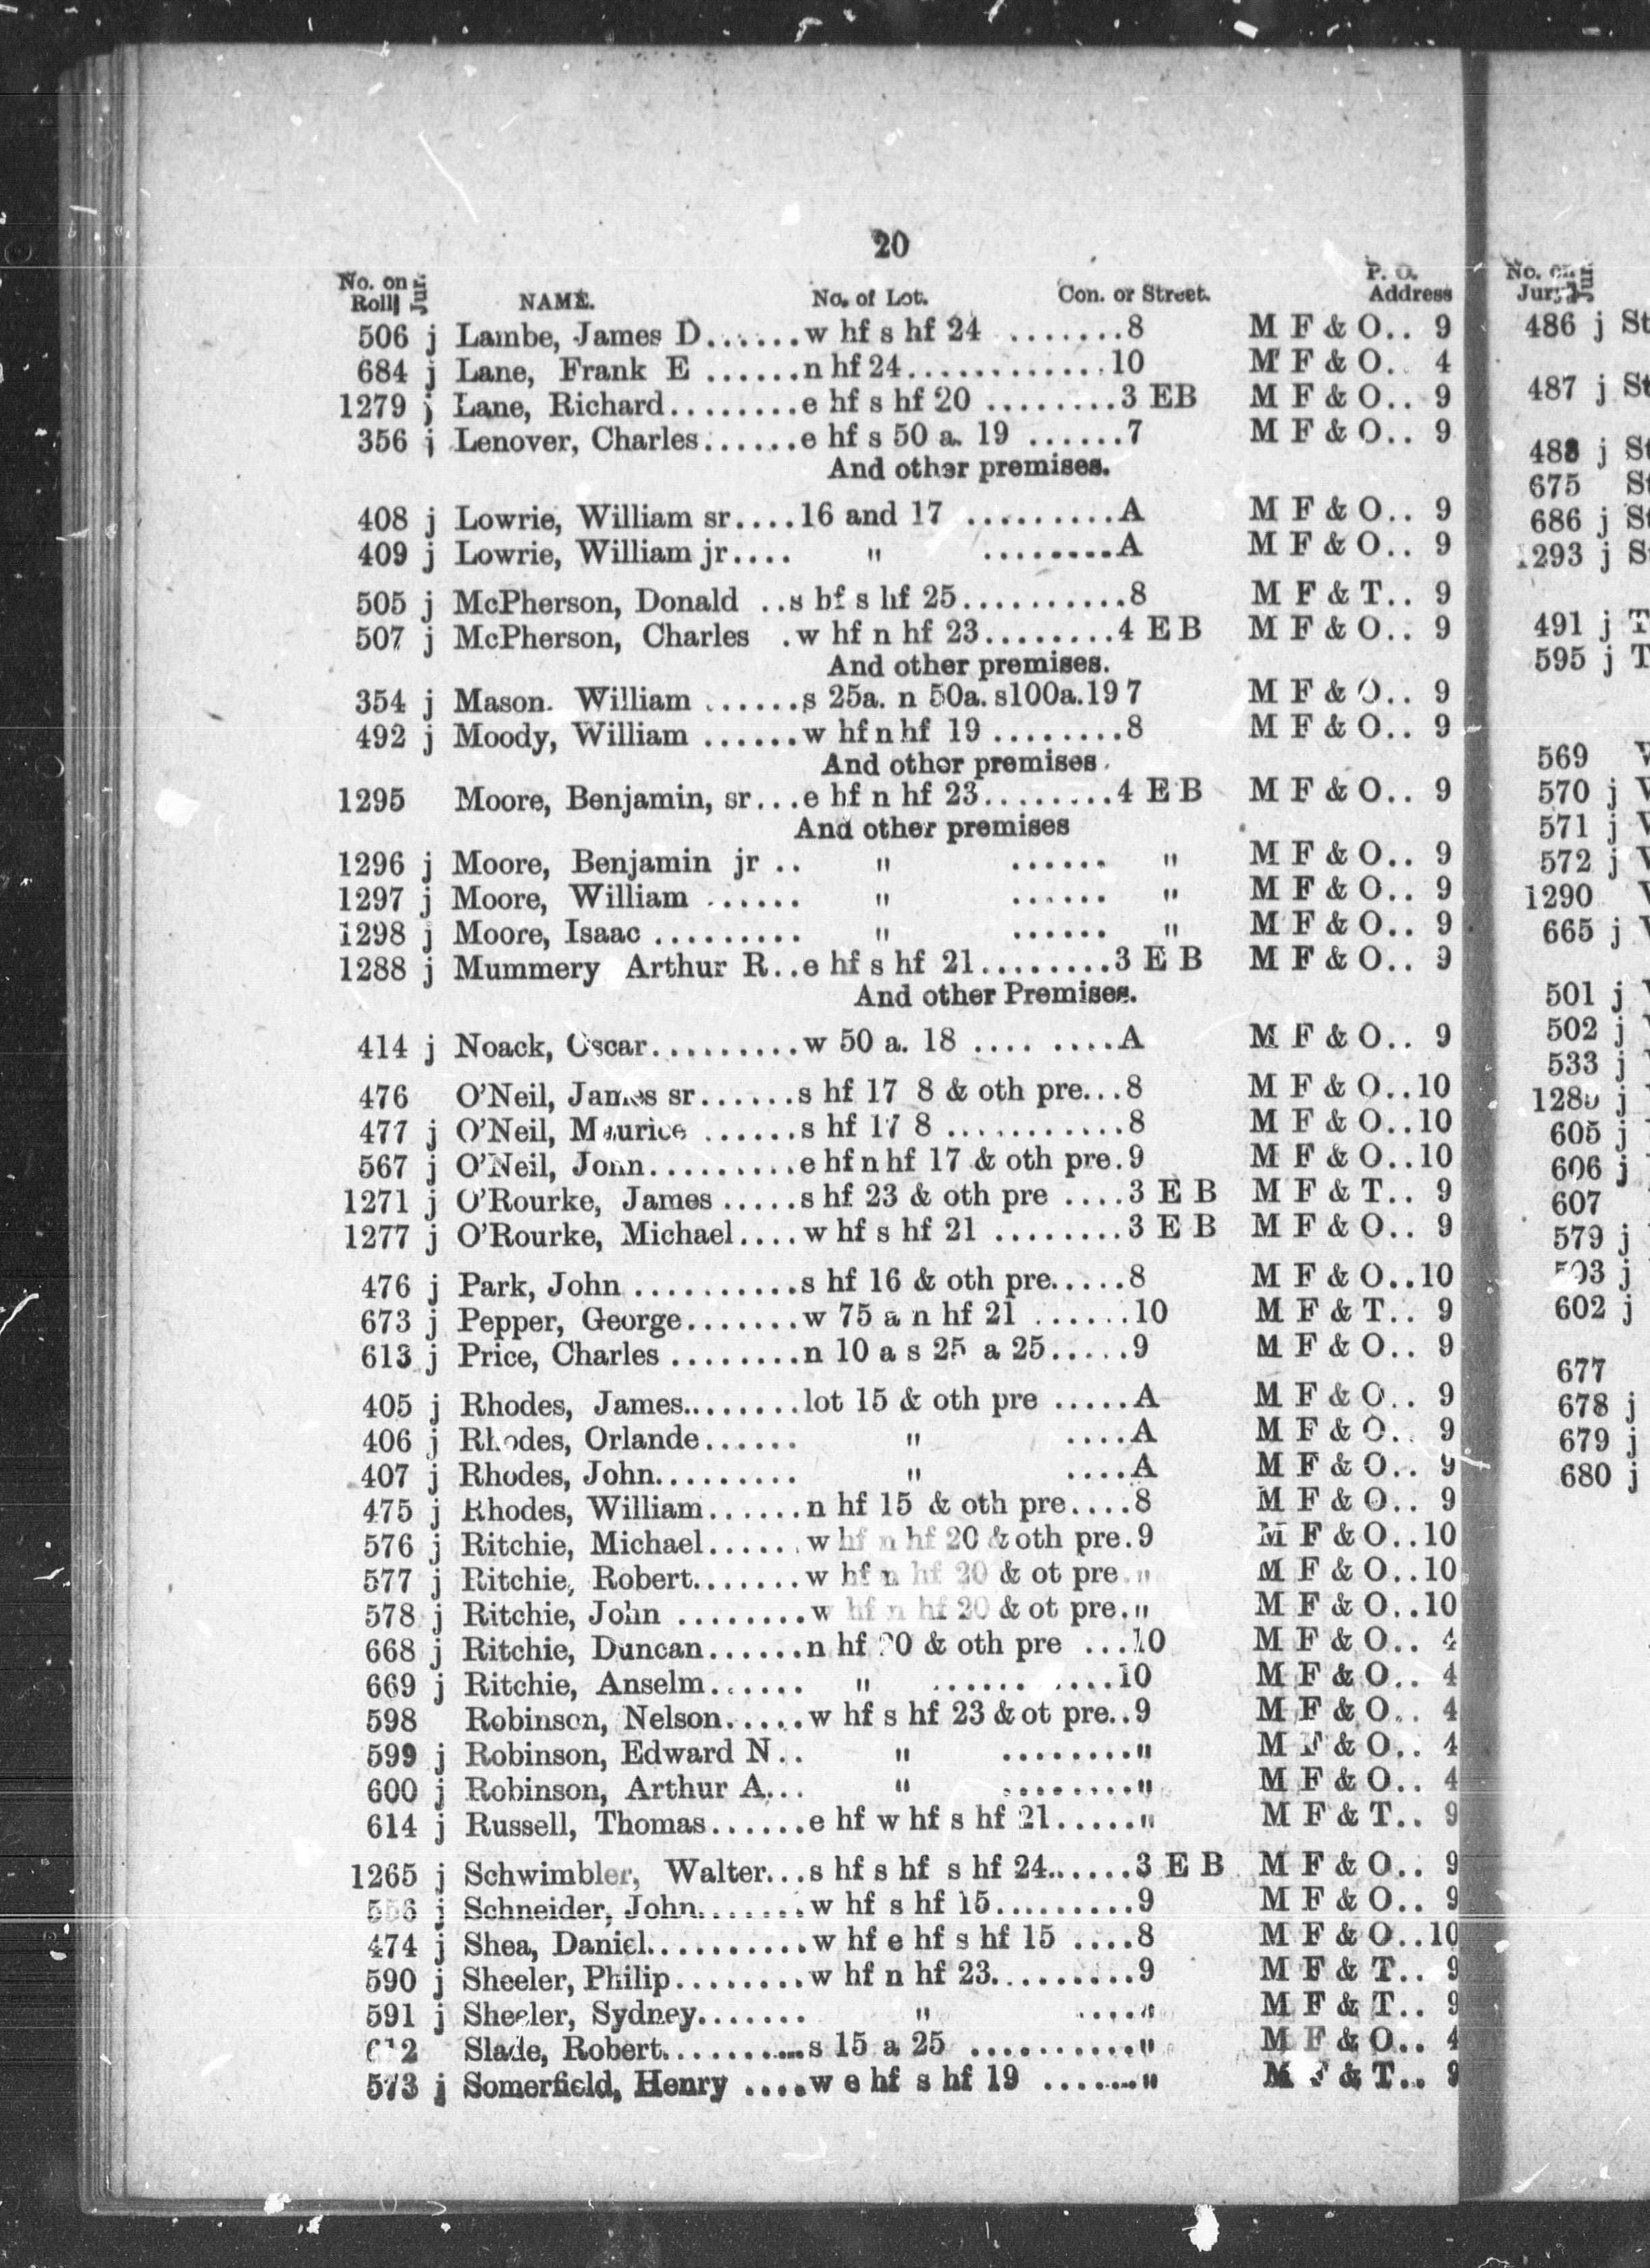 20
No. on Roll Jur. NAME. No. of Lot. Con. or Street. P. O. Address
506 j Lambe, James D......w hf s hf 24 .......8 M F & O.. 9
684 j Lane, Frank E ......n hf 24............10 M F & O.. 4
1279 j Lane, Richard........e hf s hf 20 ........3 EB M F & O.. 9
356 j Lenover, Charles......e hf s 50 a. 19 ......7 M F & O.. 9
And other premises.
408 j Lowrie, William sr....16 and 17 .........A M F & O.. 9
409 j Lowrie, William jr.... " ........A M F & O.. 9
505 j McPherson, Donald ..s hf s hf 25..........8 M F & T.. 9
507 j McPherson, Charles .w hf n hf 23........4 E B M F & O.. 9
And other premises.
354 j Mason. William ......s 25a. n 50a. s100a.19 7 M F & O.. 9
492 j Moody, William ......w hf n hf 19 ........8 M F & O.. 9
And other premises.
1295 Moore, Benjamin, sr...e hf n hf 23........4 E B M F & O.. 9
And other premises
1296 j Moore, Benjamin jr .. " ...... " M F & O.. 9
1297 j Moore, William ...... " ...... " M F & O.. 9
1298 j Moore, Isaac ......... " ...... " M F & O.. 9
1288 j Mummery Arthur R..e hf s hf 21........3 E B M F & O.. 9
And other Premises.
414 j Noack, Oscar.........w 50 a. 18 .... ....A M F & O.. 9
476 O'Neil, James sr......s hf 17 8 & oth pre...8 M F & O..10
477 j O'Neil, Maurice ......s hf 17 8 ...........8 M F & O..10
567 j O'Neil, John.........e hf n hf 17 & oth pre.9 M F & O..10
1271 j O'Rourke, James .....s hf 23 & oth pre ....3 E B M F & T.. 9
1277 j O'Rourke, Michael....w hf s hf 21 ........3 E B M F & O.. 9
476 j Park, John ..........s hf 16 & oth pre.....8 M F & O..10
673 j Pepper, George.......w 75 a n hf 21 ......10 M F & T.. 9
613 j Price, Charles ........n 10 a s 25 a 25.....9 M F & O.. 9
405 j Rhodes, James........lot 15 & oth pre .....A M F & O.. 9
406 j Rhodes, Orlande...... " ....A M F & O.. 9
407 j Rhodes, John......... " ....A M F & O.. 9
475 j Rhodes, William......n hf 15 & oth pre....8 M F & O.. 9
576 j Ritchie, Michael......w hf n hf 20 & oth pre.9 M F & O..10
577 j Ritchie, Robert.......w hf n hf 20 & ot pre." M F & O..10
578 j Ritchie, John ........w hf n hf 20 & ot pre." M F & O..10
668 j Ritchie, Duncan......n hf 20 & oth pre ...10 M F & O.. 4
669 j Ritchie, Anselm...... " ...... ....10 M F & O.. 4
598 Robinson, Nelson.....w hf s hf 23 & ot pre..9 M F & O.. 4
599 j Robinson, Edward N.. " ........" M F & O.. 4
600 j Robinson, Arthur A... " ........." M F & O.. 4
614 j Russell, Thomas......e hf w hf s hf 21....." M F & T.. 9
1265 j Schwimbler, Walter...s hf s hf s hf 24......3 E B M F & O.. 9
556 j Schneider, John.......w hf s hf 15.........9 M F & O.. 9
474 j Shea, Daniel..........w hf e hf s hf 15 ....8 M F & O..10
590 j Sheeler, Philip........w hf n hf 23.........9 M F & T.. 9
591 j Sheeler, Sydney....... " ...." M F & T.. 9
612 Slade, Robert..........s 15 a 25 ..........." M F & O.. 4
573 j Somerfield, Henry ....w e hf s hf 19 ......." M F & T.. 9
No. on Jur.
486 j
487 j
488 j
675
686 j
1293 j
491 j
595 j
569
570 j
571 j
572 j
1290
665 j
501 j
502 j
533 j
605 j
606 j
607
579 j
602 j
677
678 j
679 j
680 j